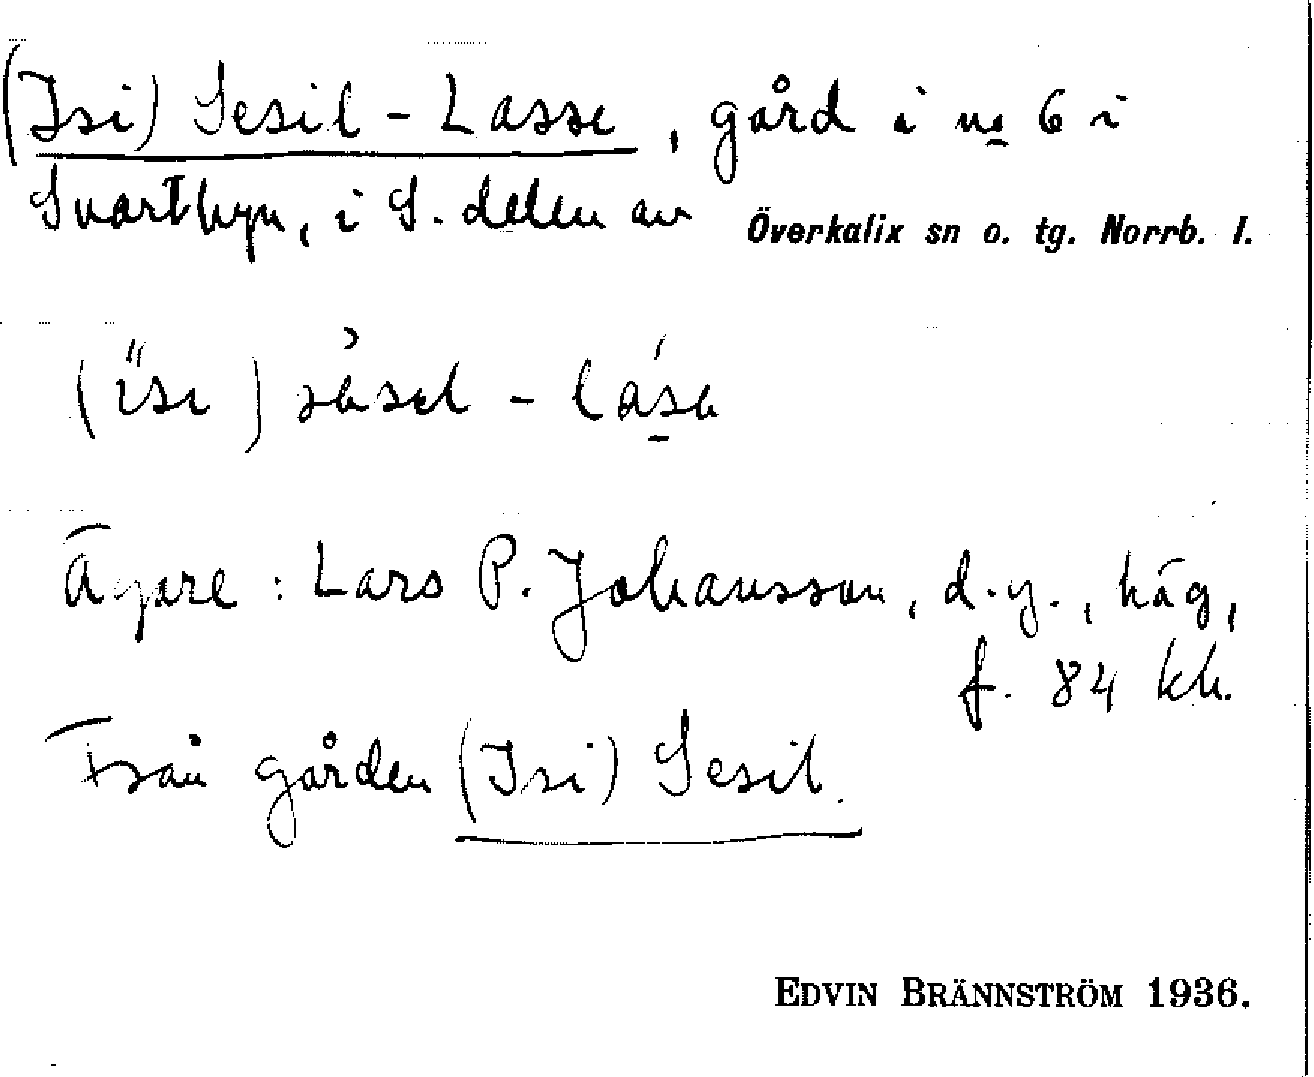 (Isi) Sesil-Lasse, gård i no 6 i
Svartbyn, i S. delen av Överkalix sn o. tg. Norrb. l.
Ägare: Lars P. Johansson, d.y., häg,
f. 84 kh.
Från gården (Isi) Sesil.
EDVIN BRÄNNSTRÖM 1936.